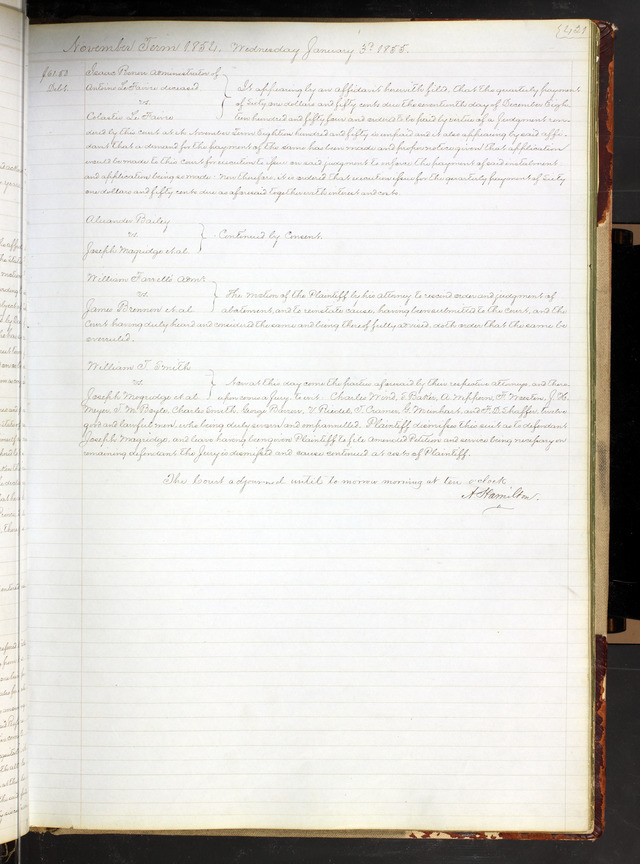 421
November Term 1854. Wednesday January 3d 1855.
$61.50 Administrator of
Debt. deceased It appearing by an affidavit herewith filed, that the quarterly payment
vs. of Sixty one dollars and fifty cents due the seventeenth day of December Eigh-
Le Favre teen hundred and fifty four and ordered to be paid by virtue of a Judgment ren-
dered by this court at its November Term Eighteen hundred and fifty is unpaid and it also appearing by said affi-
davit that a demand for the payment of the same has been made and proper notice given that application
would be made to this Court for execution to issue on said judgment to enforce the payment of said instalment
and application being so made - Now therefore, it is ordered that execution issue for the quarterly payment of Sixty
one dollars and fifty cents due as aforesaid together with interest and costs.
Alexander Bailey
vs. Continued by Consent.
Joseph Magridge et al
William Farrell's Admr
vs. The motion of the Plaintiff by his attorney to rescind order and judgment of
James Brennon et al abatement, and to reinstate cause, having been submitted to the Court, and the
Court having duly heard and considered the same and being thereof fully advised doth order that the same be
overruled.
William T. Smith
vs. Now at this day come the parties aforesaid by their respective attorneys, and there-
Joseph Mogridge et al upon come a Jury, to wit, Charles Wind, Baker, A. F. Weston, J. H.
Meyer, Charles Smith, George T. Cramer, G. and F. D. Shaffer, twelve
good and lawful men, who being duly sworn and empannelled. Plaintiff dismisses this suit as to defendant
Joseph Magridge, and leave having been given Plaintiff to file Amended Petition and service being necessary on
remaining defendant the Jury is dismissed and cause continued at costs of Plaintiff.
The Court adjourned until to morrow morning at ten o'clock
A. Hamilton.